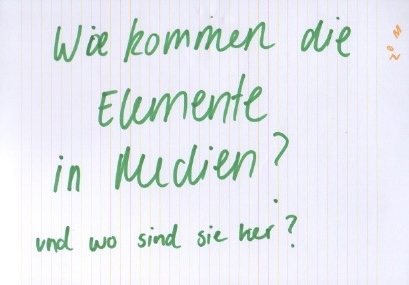 Wie kommen die
Elemente
in Medien?
und wo sind sie her?